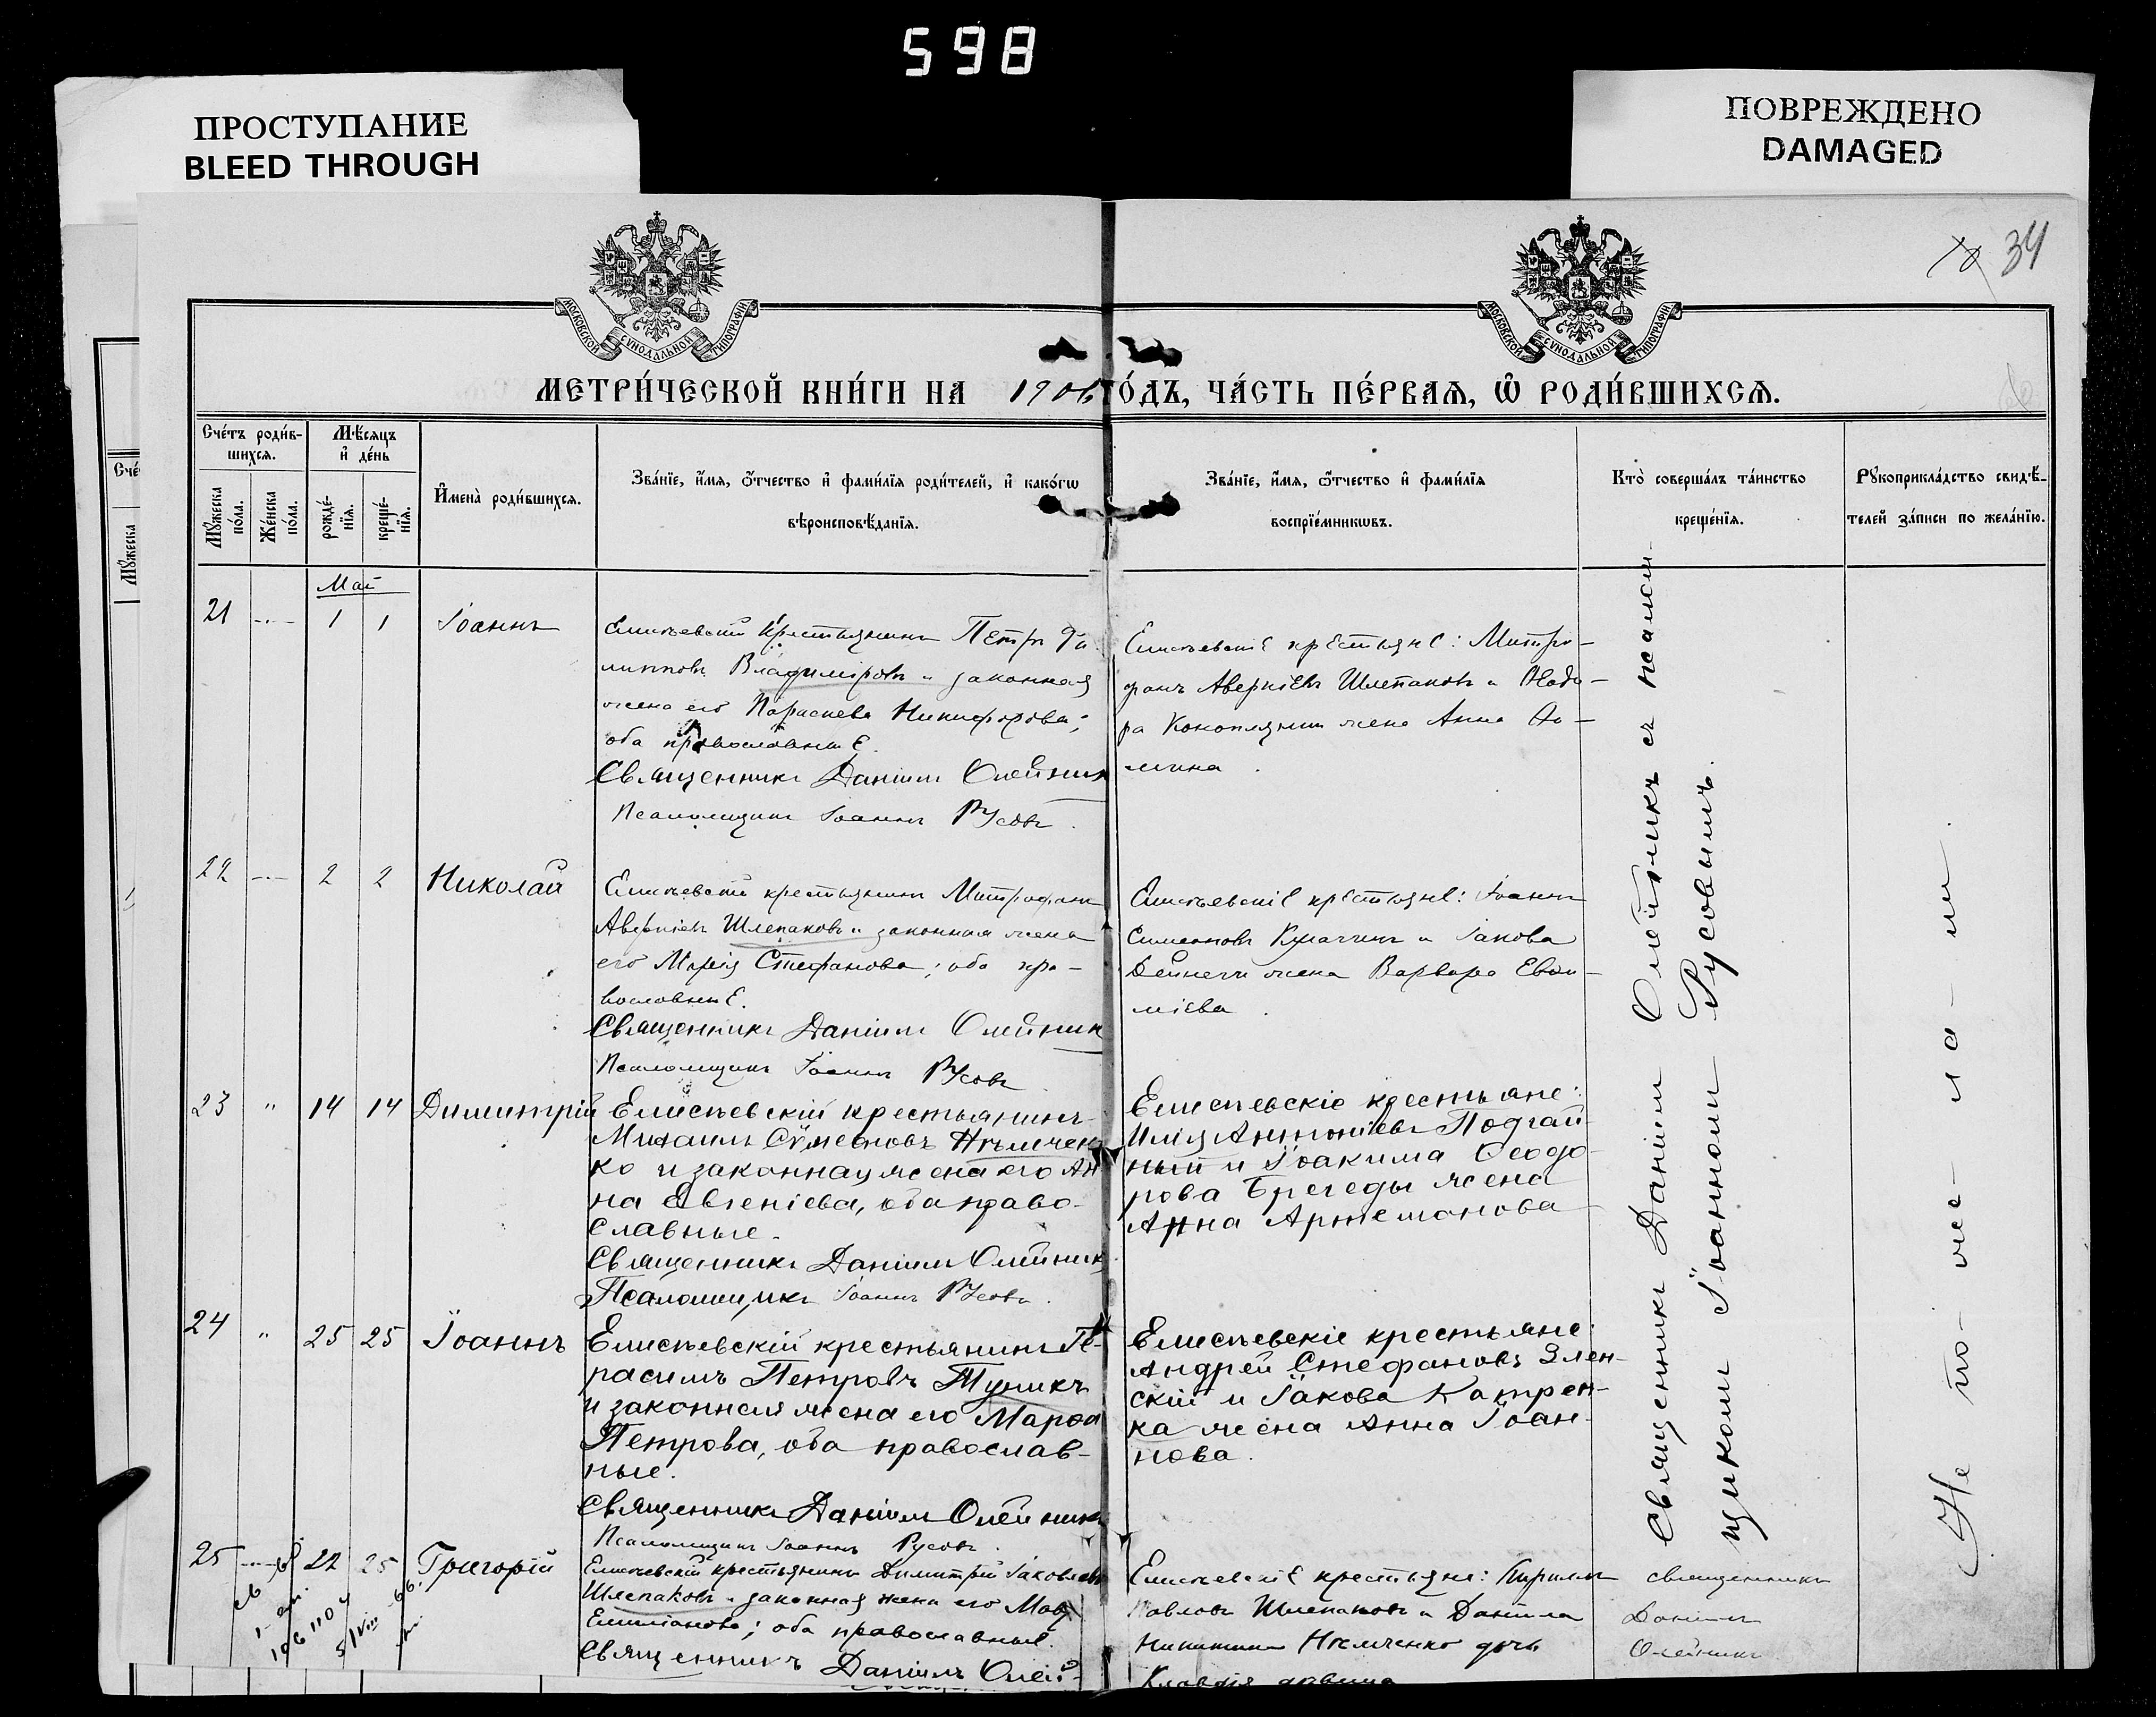 598
ПРОСТУПАНИЕ
BLEED THROUGH
ПОВРЕЖДЕНО
DAMAGED
34
МОСКОВСКОЙ СѴНОДАЛЬНОЙ ТИПОГРАФІИ
МОСКОВСКОЙ СѴНОДАЛЬНОЙ ТИПОГРАФІИ
МЕТРИ́ЧЕСКОЙ КНИ́ГИ НА 1906 ГО́ДЪ, ЧА́СТЬ ПЕ́РВАѦ, Ѡ҆ РОДИ́ВШИХСѦ.
Сче́тъ роди́в-
шихсѧ.
Мꙋжеска по́ла.
Же́нска по́ла.
Мѣ́сѧцъ
и҆ де́нь
рожде́-
нїѧ.
креще́-
нїѧ.
И҆мена̀ роди́вшихсѧ.
Зва́нїе, и҆́мѧ, ѻ҆́тчество и҆ фами́лїѧ роди́телей, и҆ како́гѡ
вѣроисповѣ́данїѧ.
Зва́нїе, и҆́мѧ, ѻ҆́тчество и҆ фами́лїѧ
воспрїе́мникѡвъ.
Кто̀ соверша́лъ та́инство
креще́нїѧ.
Рꙋкоприкла́дство свидѣ́-
телей за́писи по жела́нїю.
Май
21 -"- 1 1 Іоаннъ
Елисѣевскій крестьянинъ Петръ Фи-
липповъ Владиміровъ и законная
жена его Параскева Никифорова;
оба православные.
Священникъ Даніилъ Олейник
Псаломщикъ Іоаннъ Русовъ.
Елисѣевскіе крестьяне: Митро-
фанъ Аверкіевъ Шлепаковъ и
ра жена Анна
мина.
22 -"- 2 2 Николай
Елисѣевскій крестьянинъ Митрофанъ
Аверкіевъ Шлепаковъ и законная жена
его Марія Стефанова; оба пра-
вославные.
Священникъ Даніилъ Олейник
Псаломщикъ Іоаннъ Русовъ
Елисѣевскіе крестьяне: Іоаннъ
Симеоновъ и Іакова
Дейнеги жена Варвара Евѳи-
міева.
23 " 14 14 Димитрій
Елисѣевскій крестьянинъ
Михаилъ Сѵмеоновъ Нѣмчен
ко и законная жена его Ан
на Евгеніева, оба право-
славные.
Священникъ Даніилъ Олейник
Псаломщикъ Іоаннъ Русовъ.
Елисѣевскіе крестьяне:
Илія Антоніевъ Подгай-
ный и Іоакима Ѳеодо-
рова Брегеды жена
Анна Артемонова
24 " 25 25 Іоаннъ
Елисѣевскій крестьянинъ Ге-
расимъ Петровъ Тупикъ
и законная жена его Марѳа
Петрова, оба православ-
ные.
Священникъ Даніилъ Олейник
Псаломщикъ Іоаннъ Русовъ.
Елисѣевскіе крестьяне
Андрей Стефановъ Злен-
скій и Іакова Катрен-
ка жена Анна Іоан-
нова.
25 -"- 22 25 Григорій
Елисѣевскій крестьянинъ Димитрій Іаковлевъ
Шлепаковъ и законная жена его
оба православные.
Священникъ Даніилъ Олей-
Елисѣевскіе крестьяне: Кириллъ
Павловъ Шлепаковъ и Даніила
Никитина Нѣмченко дочь
Клавдія дѣвица
Священникъ Даніилъ Олейникъ съ псалом-
щикомъ Іоанномъ Русовымъ.
священникъ
Даніилъ
Олейникъ
Не по- же- ла- ли.